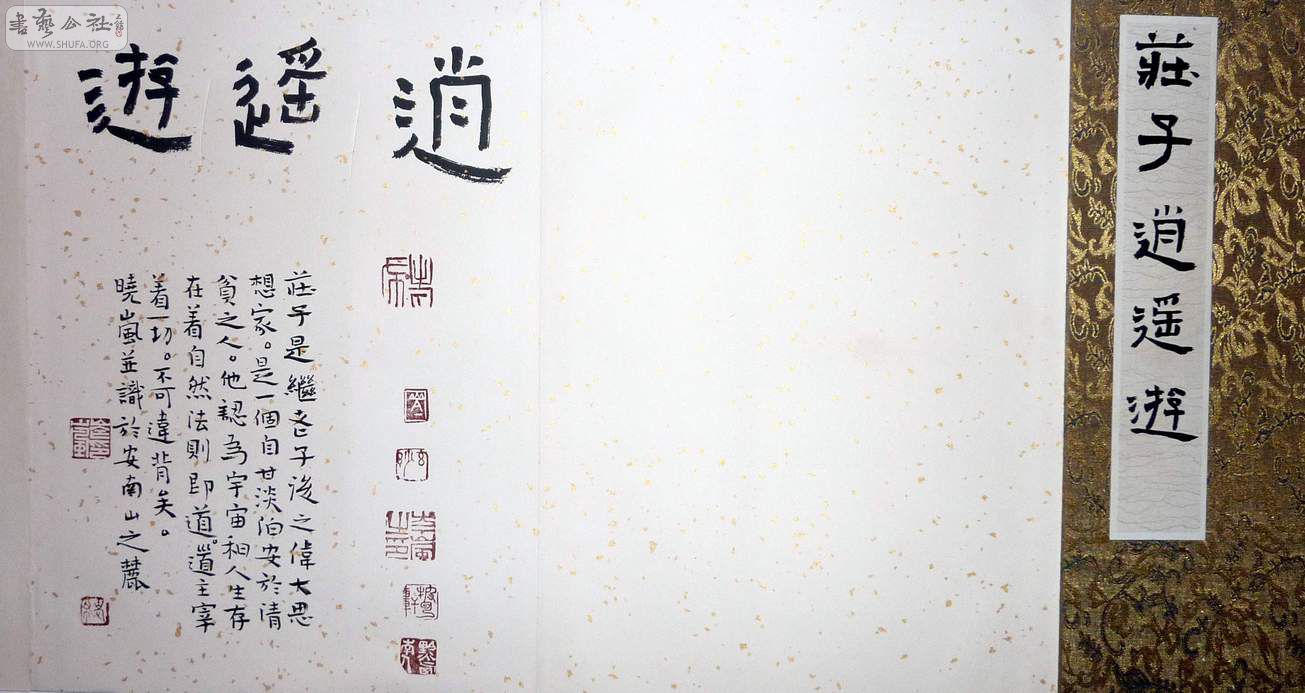 莊子逍遥遊
逍遥遊
莊子是繼老子後之偉大思
想家。是一個自甘淡泊安於清
貧之人。他認为宇宙和人生存
在着自然法則即道。道主宰
着一切。不可違背矣。
曉嵐並識於安南山之麓
書藝公社
WWW.SHUFA.ORG